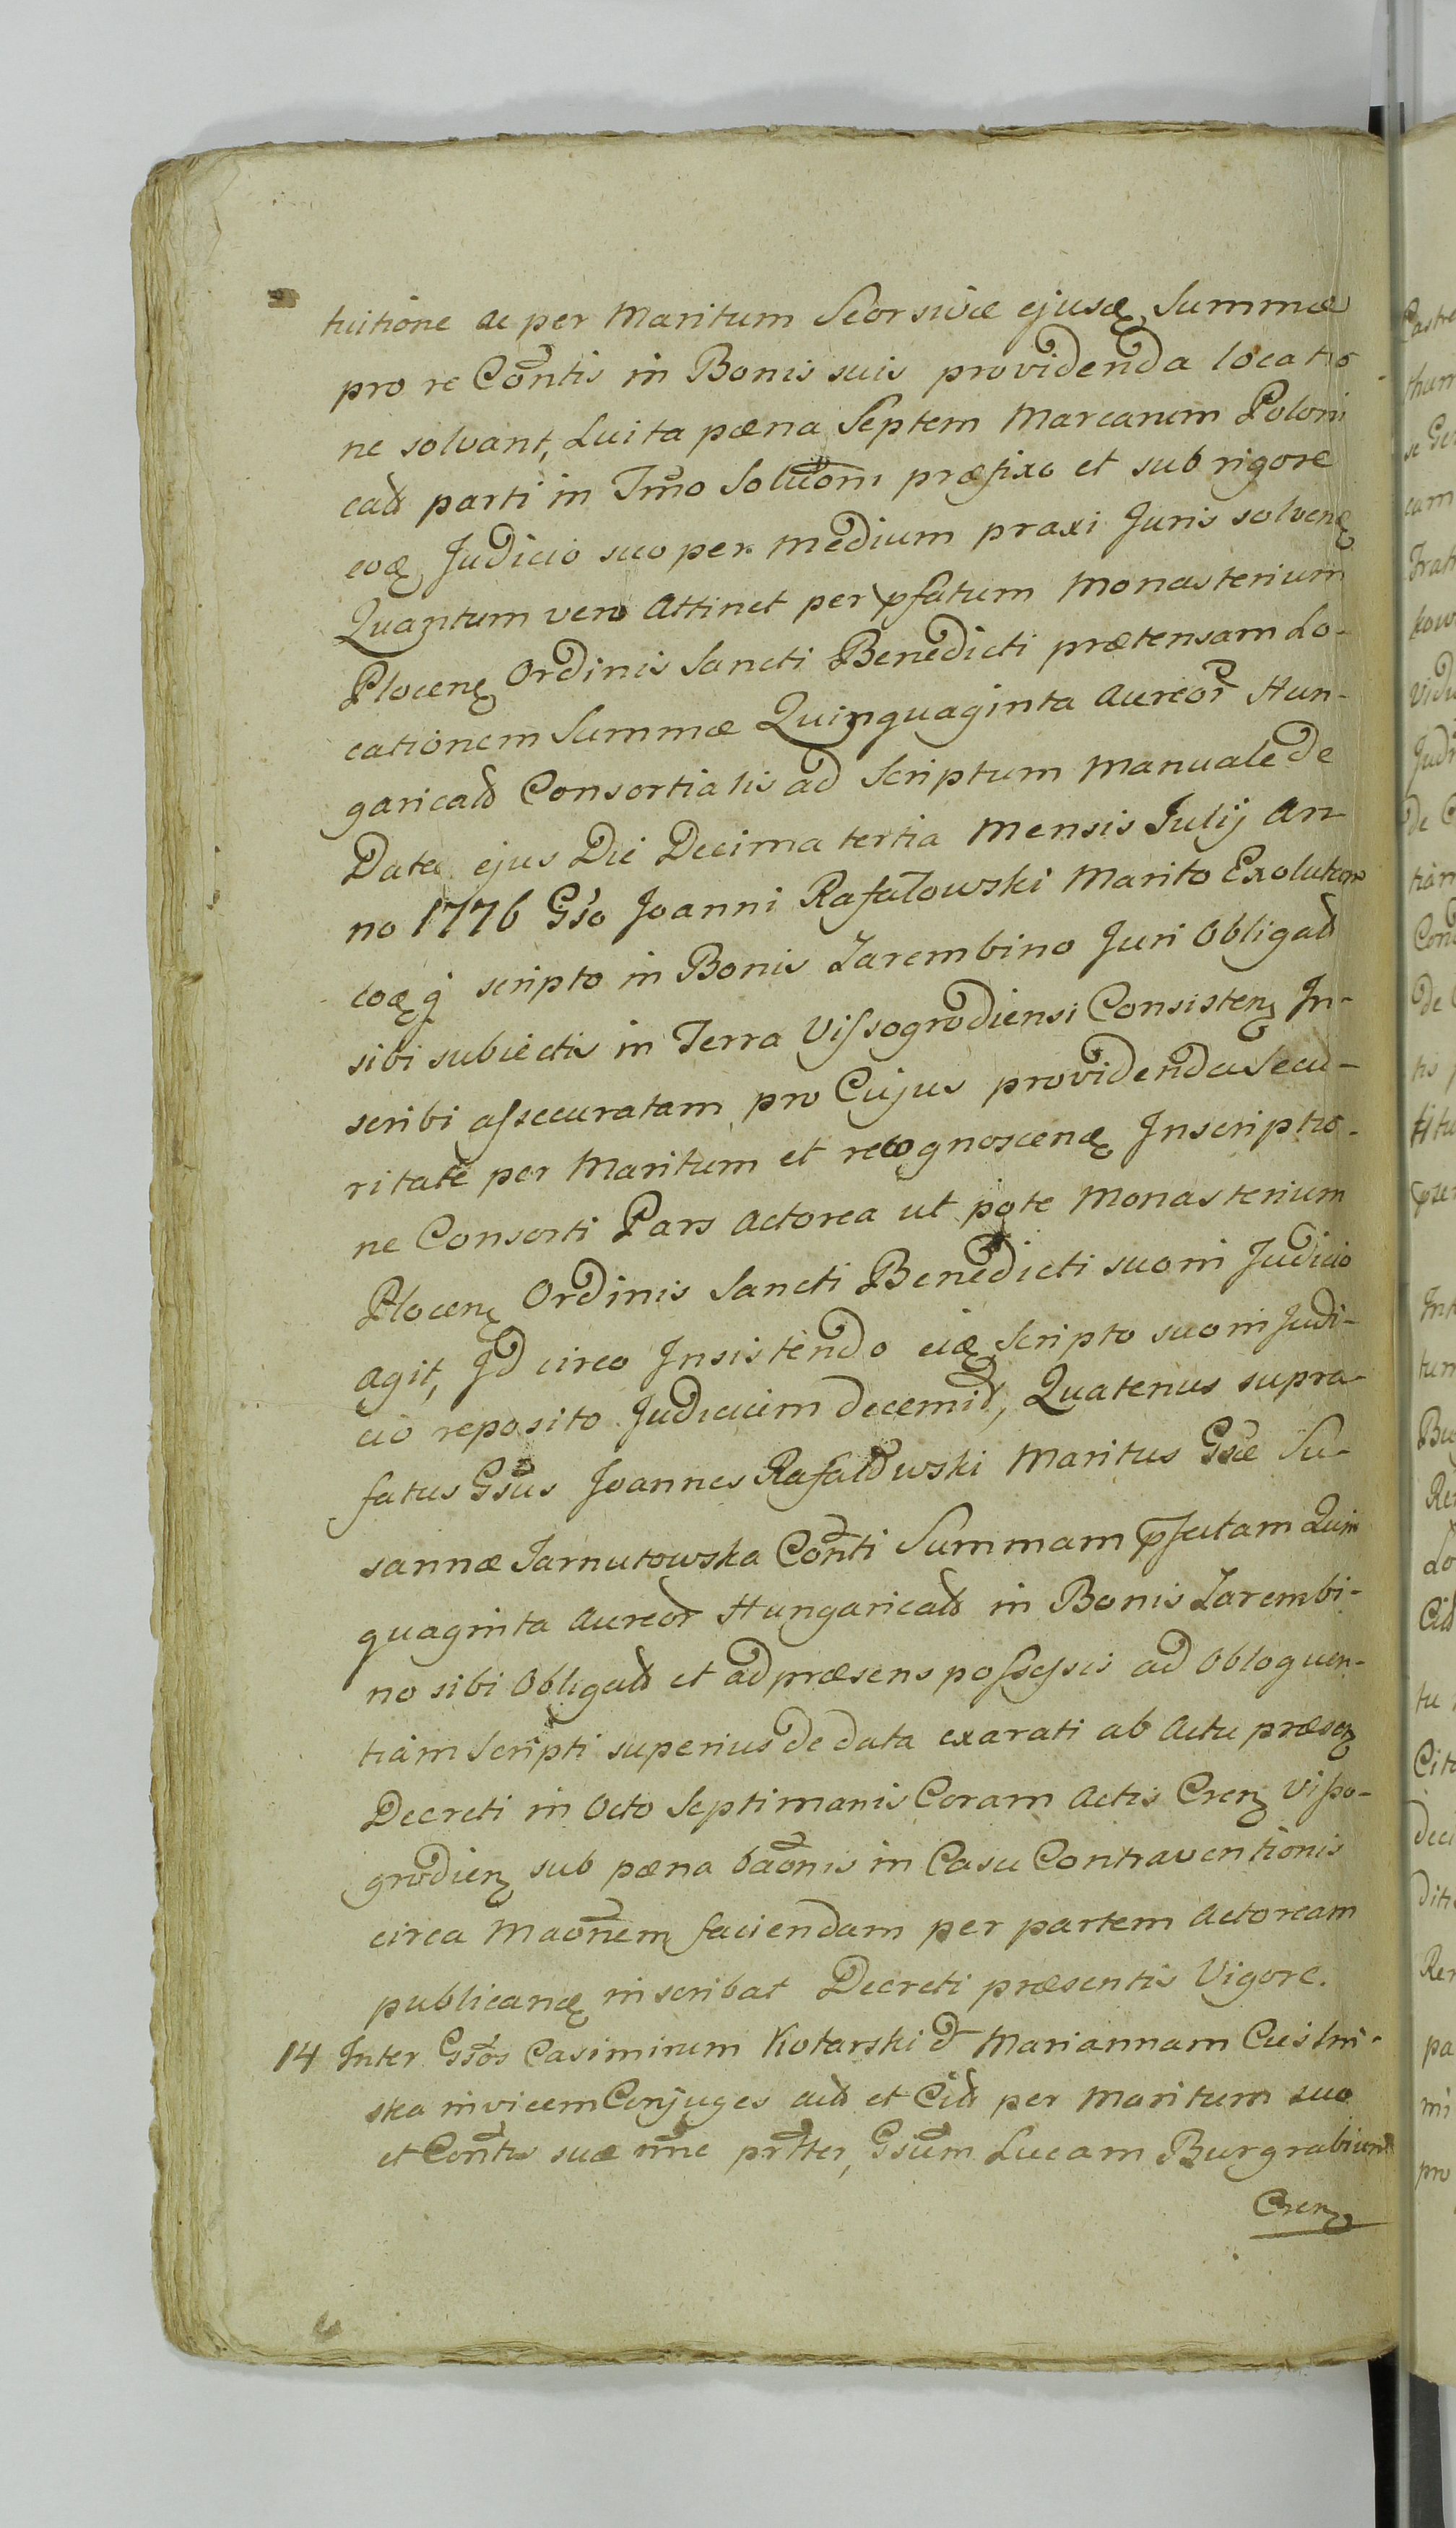 tuitione ac per Maritum Seorsivæ ejusdę Summæ
pro re Contis in Bonis suis providenda locatio-
ne solvant, Luita pæna Septem Marcarum Poloni
cał parti in Tmo Solutioni præfixo et sub rigore
eodę Judicio suo per medium praxi Juris solvenę
Quantum vero Attinet per pfatum Monasterium
Plocenę Ordinis Sancti Benedicti prætensam Lo-
cationem Summæ Quinquaginta Aureor Hun-
garicał Consortialis ad Scriptum Manuale de
Data ejus Die Decima tertia Mensis Julij An-
no 1776 Gso Joanni Rafałowski Marito Exolutam
eoę q scripto in Bonis Zarembino Juri Obligał
sibi subiectis in Terra Vissogrodiensi Consistenę In-
scribi assecuratam, pro Cujus providenda Secu-
ritate per Maritum et recognoscenę Inscriptio-
ne Consorti Pars Actorea ut pote Monasterium
Plocenę Ordinis Sancti Benedicti suo in Judicio
agit, Id circo Insistendo eię Scripto suo in Judi-
cio reposito Judicium decernit, Quatenus supra-
fatus Gsus Joannes Rafałowski Maritus Gsæ Su-
sannæ Jarnutowska Conti Summam pfatam Quin
quaginta Aureor Hungaricał in Bonis Zarembi-
no sibi Obligał et ad præsens possessis ad Obloquen-
tiam Scripti superius de data exarati ab Actu præsenę
Decreti in Octo Septimanis Coram Actis Crenę Visso-
grodienę sub pæna baonis in Casu Contraventionis
circa Maonem faciendam per partem Actoream
publicanę inscribat Decreti præsentis Vigore.
14 Inter Gsos Casimirum Kotarski & Mariannam
ska invicem Conjuges et per Maritum suo
et Contis suæ nne prtter, Gsum Lucam Burgrabium
Crenę